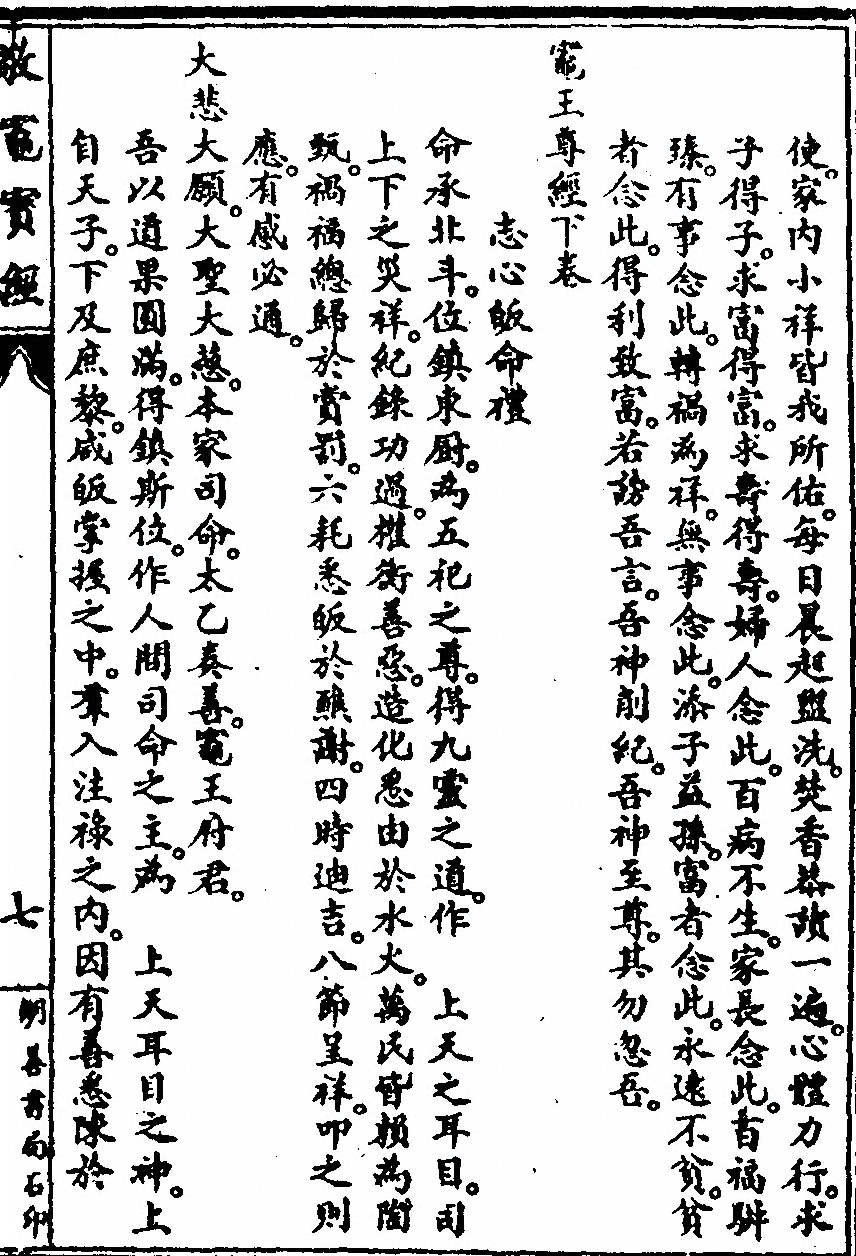 使。家内小祥皆我所佑。每日晨起盥洗。焚香恭讀一遍。心體力行。求
子得子。求富得富。求壽得壽。婦人念此。百病不生。家長念此。百福駢
臻。有事念此。轉禍為祥。無事念此。添子益孫。富者念此。永遠不貧。貧
者念此。得利致富。若謗吾言。吾神削紀。吾神至尊。其勿忽吾。
竈王尊經下卷
志心皈命禮
命承北斗。位鎮東厨。為五祀之尊。得九靈之道。作 上天之耳目。司
上下之災祥。紀錄功過。權衡善惡。造化悉由於水火。萬民皆賴為陶
甄。禍福總歸於賞罰。六耗悉皈於醮謝。四時迪吉。八節呈祥。叩之則
應。有感必通。
大悲大願。大聖大慈。本家司命。太乙奏善。竈王府君。
吾以道果圓滿。得鎮斯位。作人間司命之主。為 上天耳目之神。上
自天子。下及庶黎。咸皈掌握之中。羣入注祿之内。因有善悉陳於
敬竈寶經
七
明善書局石印